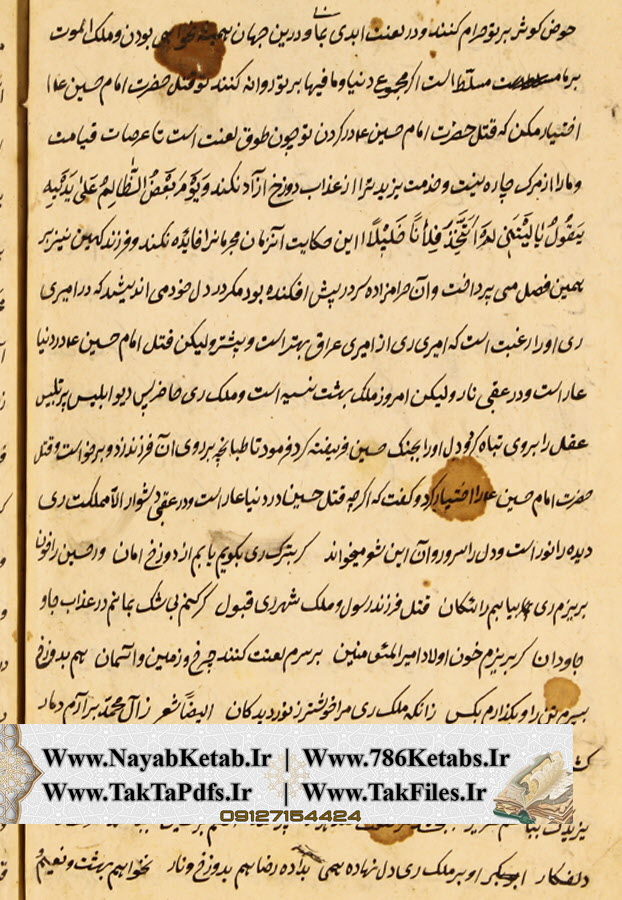 حوض کوثر بر تو حرام کنند و در لعنت ابدی بمانی و درین جهان همیشه نخواهی بودن و ملک الموت
بر ما مسلط است اگر مجموع دنیا و ما فیها بر تو روانه کنند تو قتل حضرت امام حسین ع را
اختیار مکن که قتل حضرت امام حسین ع در کردن تو چون طوق لعنت است تا عرصات قیامت
و ما را از مرک چاره نیست و خدمت یزید ترا از عذاب دوزخ آزاد نکند وَیَوْمَ یَعَضُّ الظَّالِمُ عَلیٰ یَدَیْهِ
یَقُولُ یَا لَیْتَنِی لَمْ اَتَّخِذْ فُلَاناً خَلِیلًا این حکایت آنزمان مجرمانرا فایده نکند و فرزند کهین نیز بر
همین فصل می پرداخت و آن حرامزاده سر در پیش افکنده بود مکر در دل خود می اندیشد که در امیری
ری او را رغبت است که امیری ری از امیری عراق بهتر است و بیشتر ولیکن قتل امام حسین ع در دنیا
عار است و در عقبی نار ولیکن امروز ملک بهشت نسیه است و ملک ری حاضر پس دیو ابلیس پر تلبیس
عقل را بروی تباه کرد و دل او را بجنک حسین فریفته کرد فرمود تا طبانچه بر روی آن فرزند زد و برخواست و قتل
حضرت امام حسین ع را اختیار کرد و کفت که اکرچه قتل حسین در دنیا عار است و در عقبی دشوار الا مملکت ری
دیده را نور است و دل را سرور و آن این شعر میخواند کر بترک ری بکویم یابم از دوزخ امان ور حسین را خون
بریزم ری بیابم رایکان قتل فرزند رسول و ملک شهر ری قبول کر کنم بی شک بمانم در عذاب جاو
جاودان کر بریزم خون اولاد امیر المؤمنین بر سرم لعنت کنند چرخ و زمین و آسمان هم بدوزخ
بسپرم تن را و بکذارم بکس زانکه ملک ری مرا خوشتر ز نور دیدکان ایضاً شعر ز آل محمد برآرم دمار
www.NayabKetab.Ir | Www.786Ketabs.Ir
Www.TakTaPdfs.Ir | Www.TakFiles.Ir
09127154424
دلفکار او بر ملک ری دل نهاده همی بداده رضا هم بدوزخ و نار نخواهم بهشت و نعیم